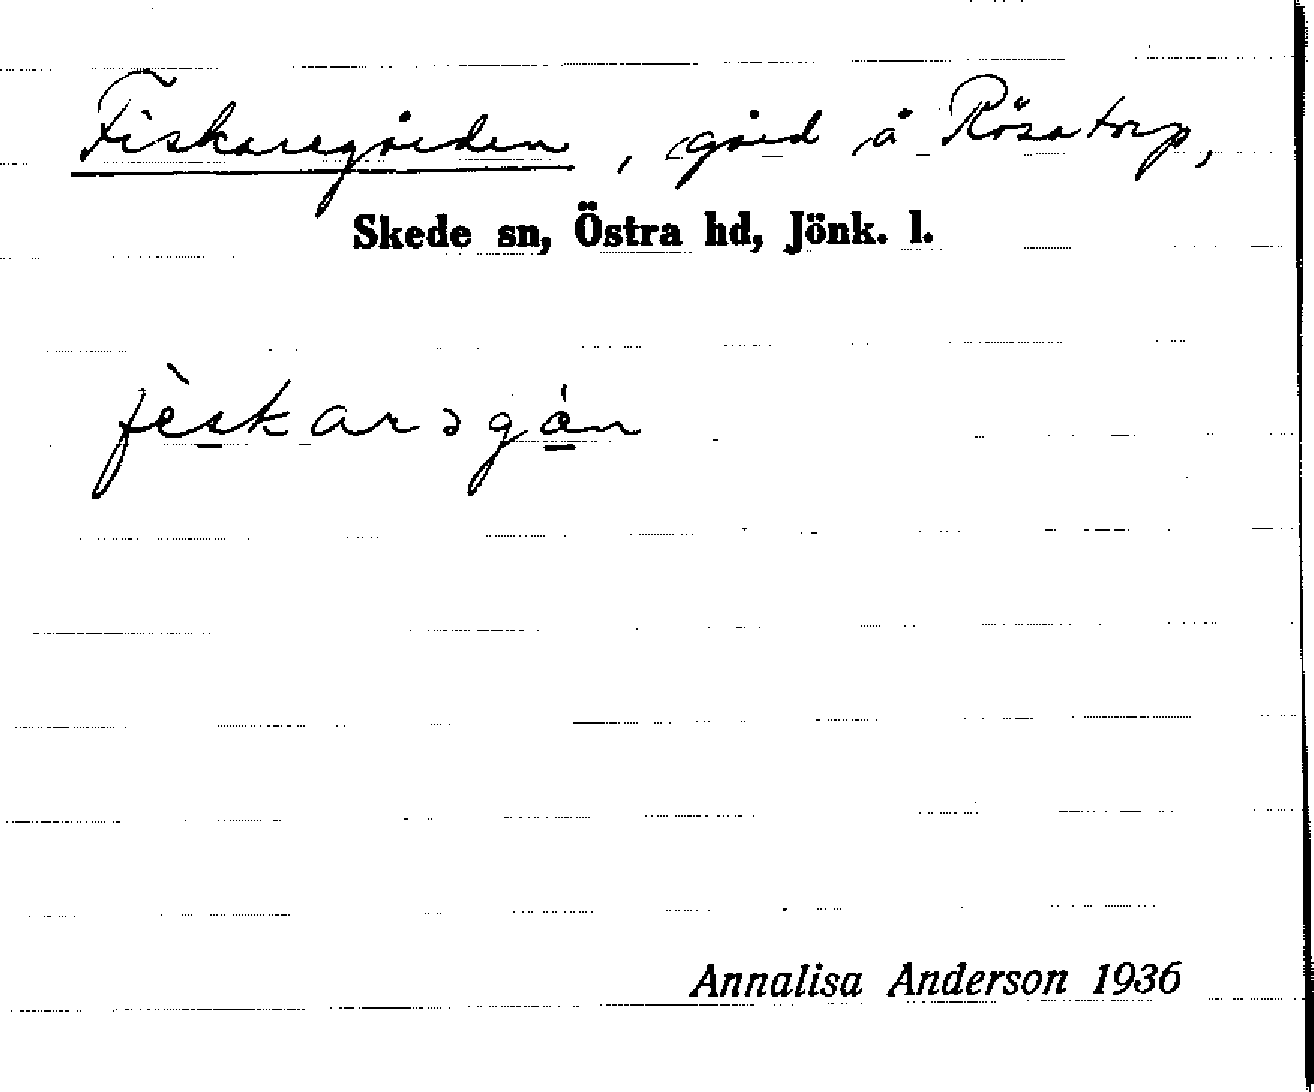 Fiskaregården, gård å Rösatorp,
Skede sn, Östra hd, Jönk. l.
fèskarəgán
Annalisa Anderson 1936